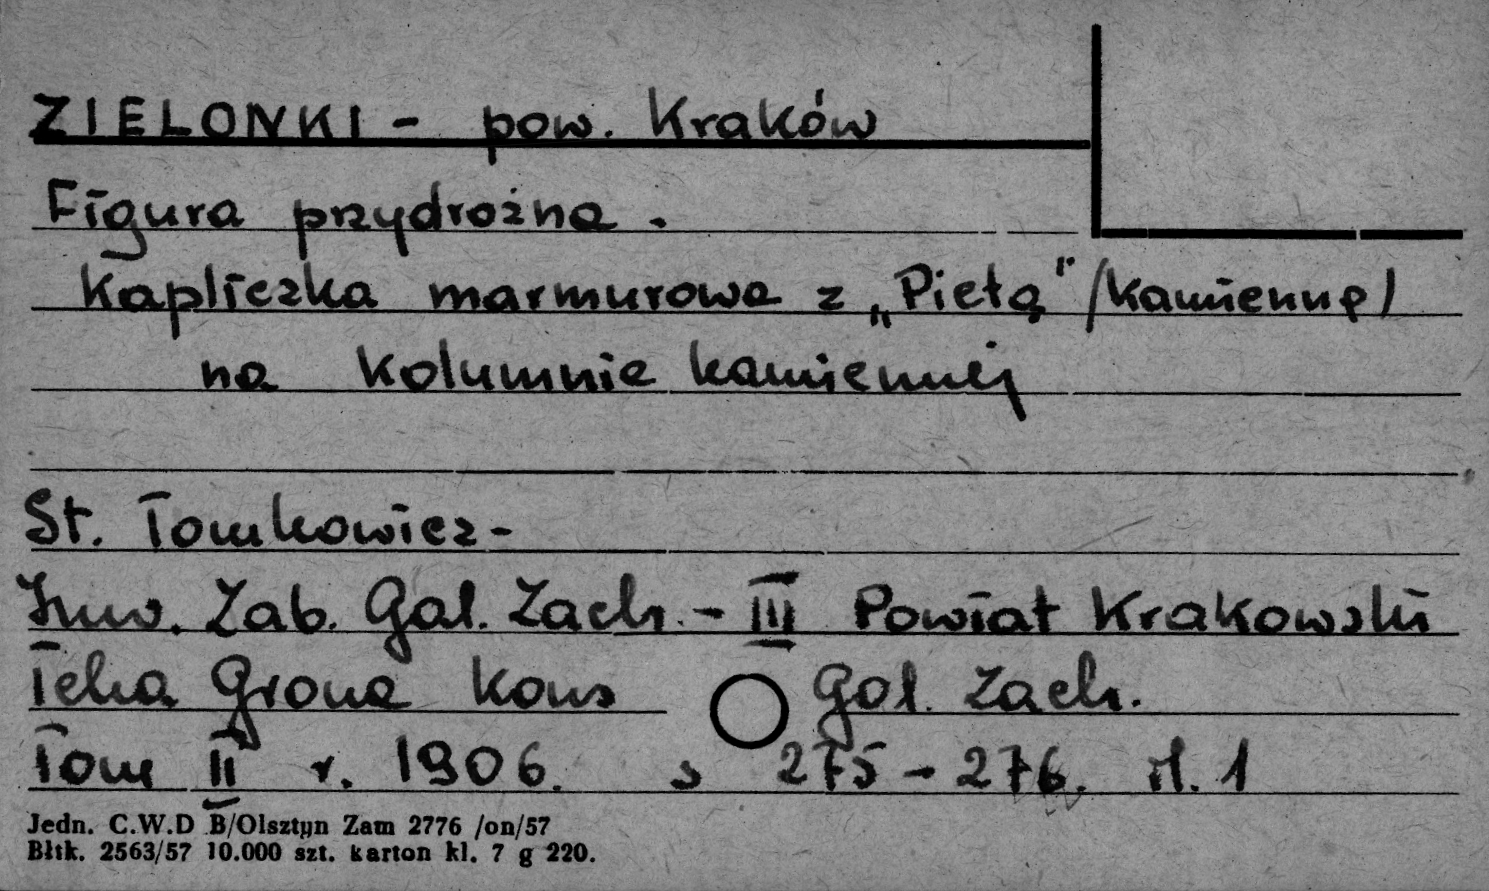 ZIELONKI - pow. Kraków
Figura przydrożna.
Kapliczka marmurowa z „Pietą" (kamienną)
na kolumnie kamiennej
St. Tomkowicz -
Inw. Zab. Gal. Zach. - III Powiat Krakowski
Teka Grona Kons Gal. Zach.
Tom II r. 1906. s 275 - 276. il. 1
Jedn. C.W.D B/Olsztyn Zam 2776 /on/57
Bltk. 2563/57 10.000 szt. karton kl. 7 g 220.